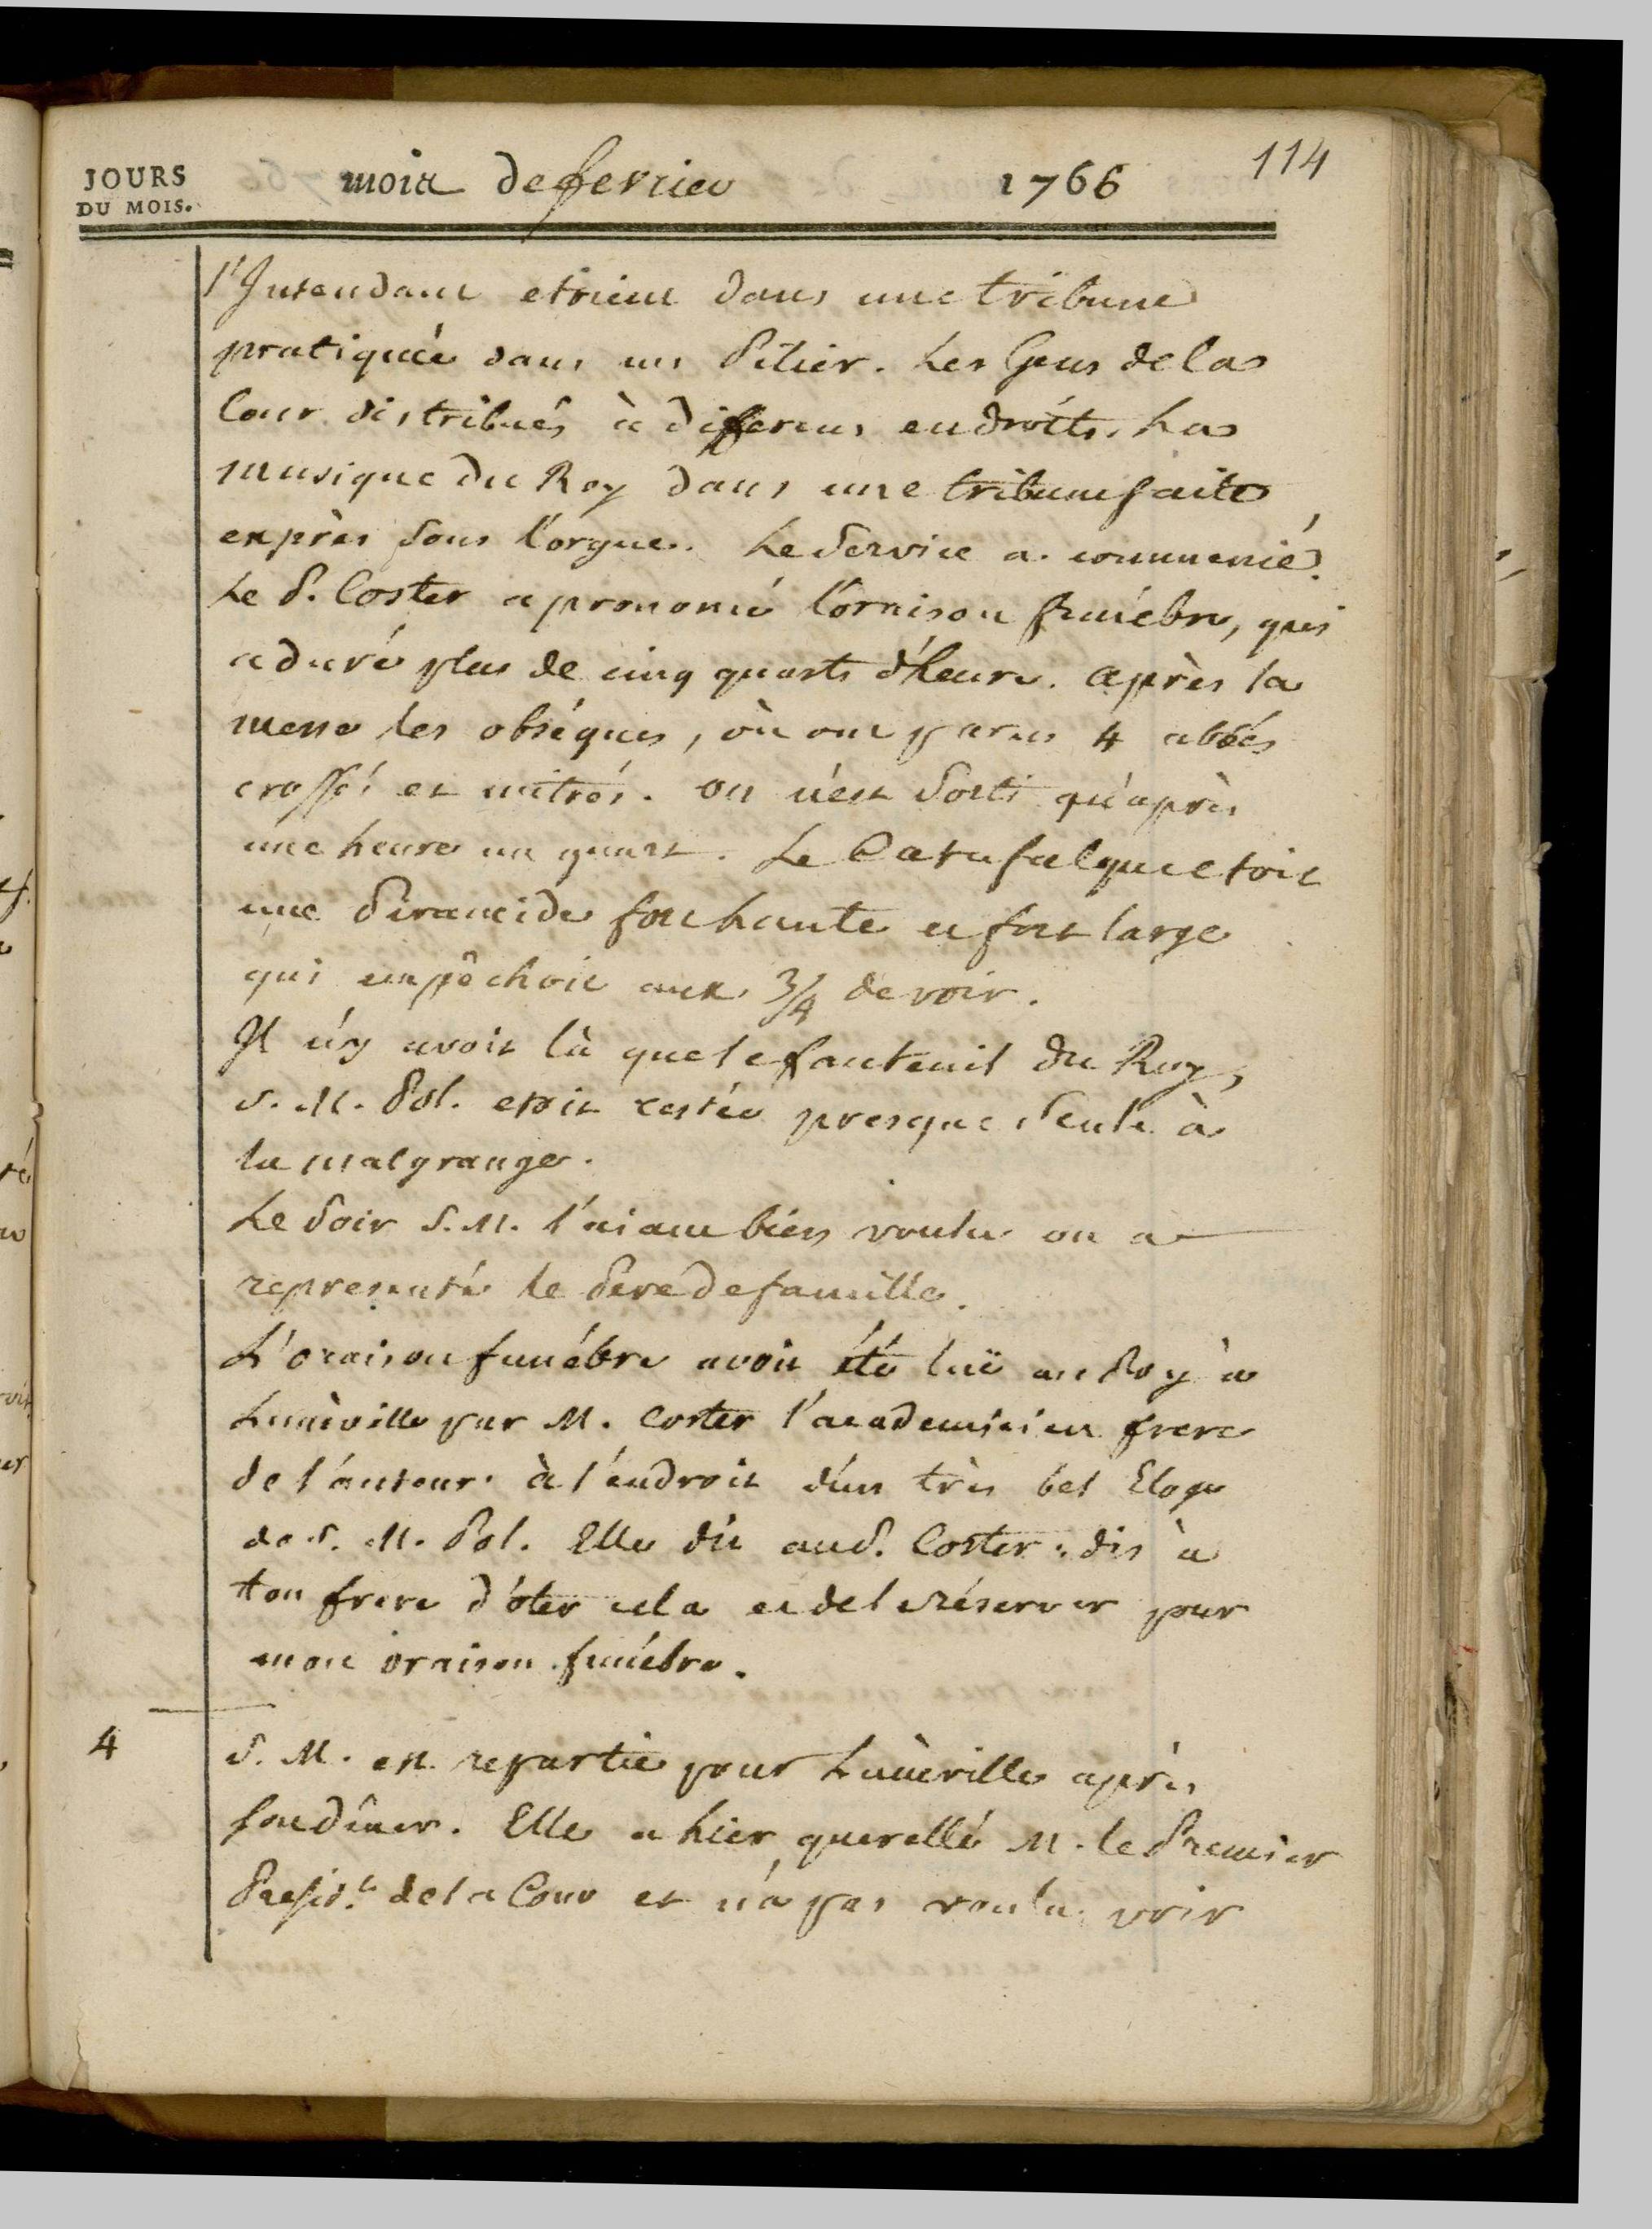 114
JOURS
DU MOIS.
mois de fevrier 1766
l'Intendant etoient dans une tribune
pratiquée dans un Pilier. Les Gens de la
Cour distribués à differens endroits. La
musique du Roy dans une tribune faite
exprès sous l'orgue. Le Service a commencé.
Le P. Coster a prononcé l'oraison funébre, qui
a duré plus de cinq quarts d'heure. après la
messe les obséques, où ont parus 4 abbés
crossés et mitrés. on n'est sorti qu'après
une heure un quart. Le Catafalque etoit
une Piramide fort haute et fort large
qui empêchoit aux 3/4 de voir.
Il n'y avoit là que le fauteuil du Roy,
S. M. Pol. etoit restée presque seule à
la malgrange.
Le Soir S. M. l'aiant bien voulu on a
representé le Pere de famille.
L'oraison funébre avoit été luë au Roy à
Lunéville par M. Coster l'academicien frere
de l'auteur. à l'endroit d'un très bel Eloge
de S. M. Pol. Elle dit aud. Coster: dis à
ton frere d'ôter cela et de le réserver pour
mon oraison funébre.
4
S. M. est repartie pour Lunéville après
son diner. Elle a hier querellé M. le Premier
Presid.t de la Cour et n'a pas voulu voir